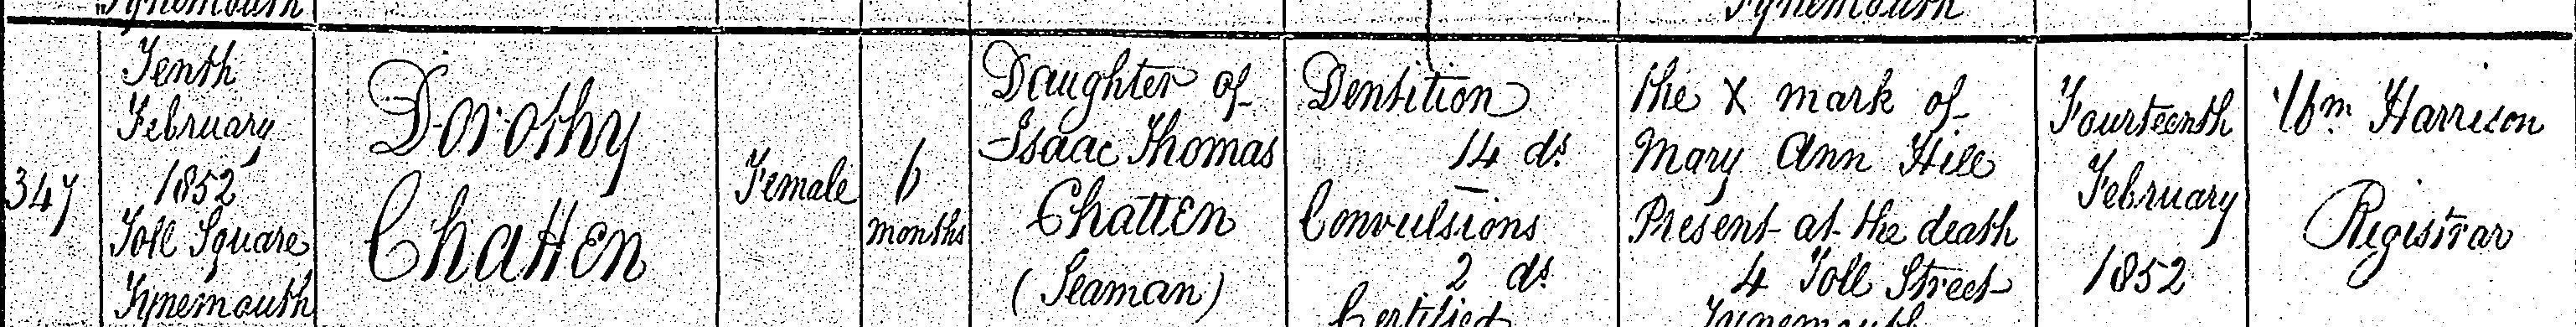 Tynemouth
Tynemouth
347
Tenth
February
1852
Toll Square
Tynemouth
Dorothy
Chatten
Female
6
months
Daughter of
Isaac Thomas
Chatten
(Seaman)
Dentition
14 ds
Convulsions
2 ds
Certified
the X mark of
Mary Ann Hill
Present at the death
4 Toll Street
Tynemouth
Fourteenth
February
1852
Wm Harrison
Registrar